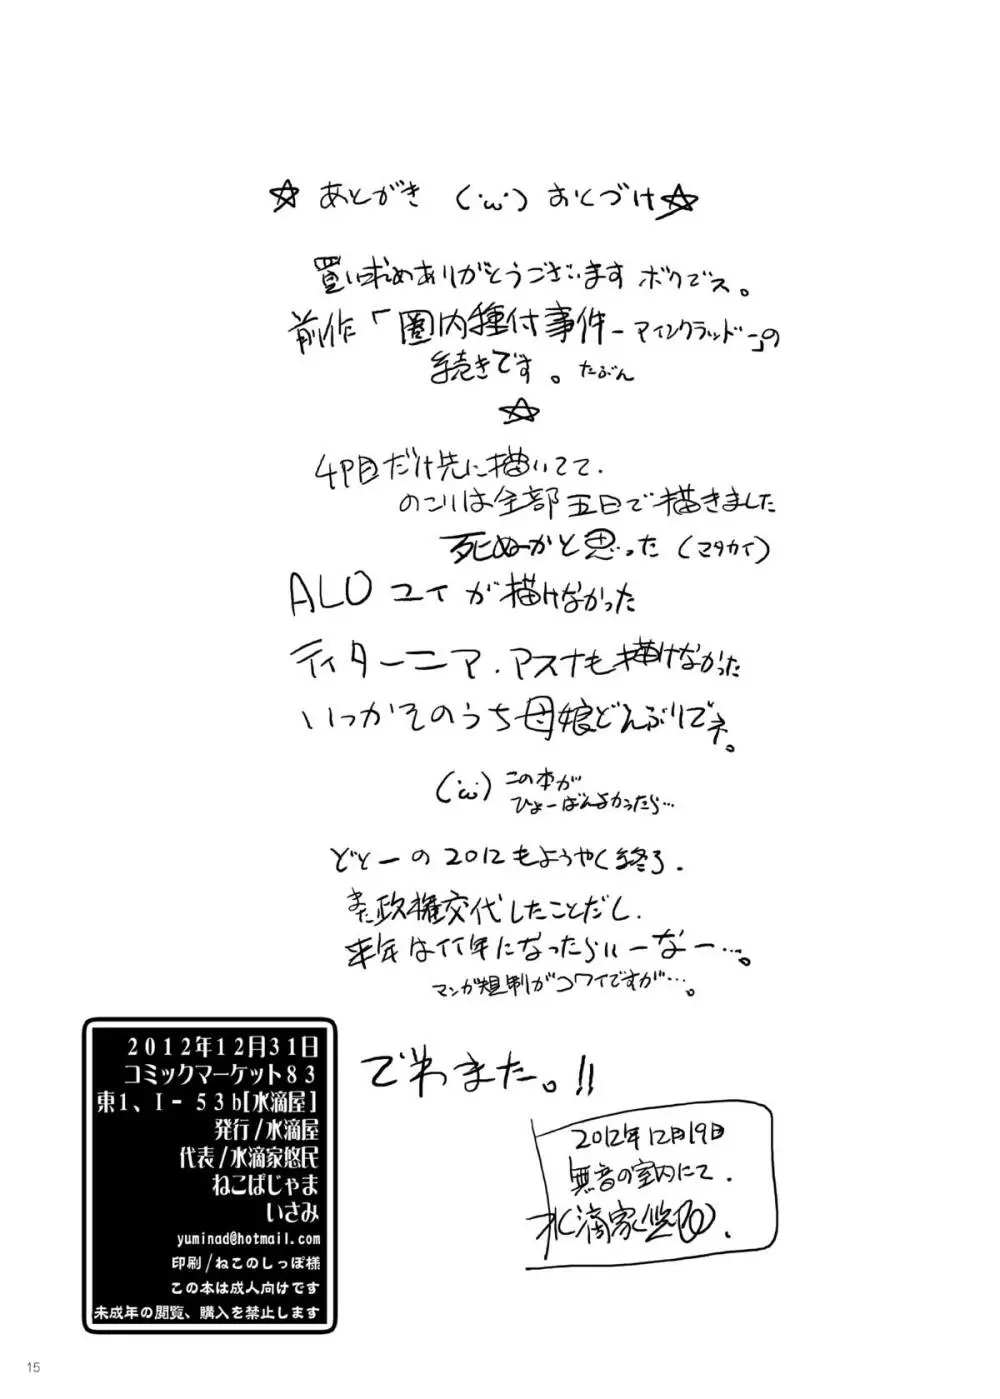 ☆ あとがき (・ω・) おくづけ☆
買い求めありがとうございます ボクデス。
前作「圏内種付事件－アインクラッド－」の
続きです。たぶん
☆
4P目だけ先に描いてて、
のこりは全部五日で描きました
死ぬかと思った (マタカイ)
ALO ユイが描けなかった
ティターニア、アスナも描けなかった
いつかそのうち母娘どんぶりでネ。
(・ω・) この本が
ひょーばんよかったら…
どとーの2012もようやく終了、
また政権交代したことだし、
来年はイイ年になったらいーなー…。
マンガ規制がコワイですが…。
でわまた。!!
2012年12月19日
無音の室内にて、
水滴家悠民
2012年12月31日
コミックマーケット83
東1、I-53b[水滴屋]
発行/水滴屋
代表/水滴家悠民
ねこぱじゃま
いさみ
yuminad@hotmail.com
印刷/ねこのしっぽ様
この本は成人向けです
未成年の閲覧、購入を禁止します
15